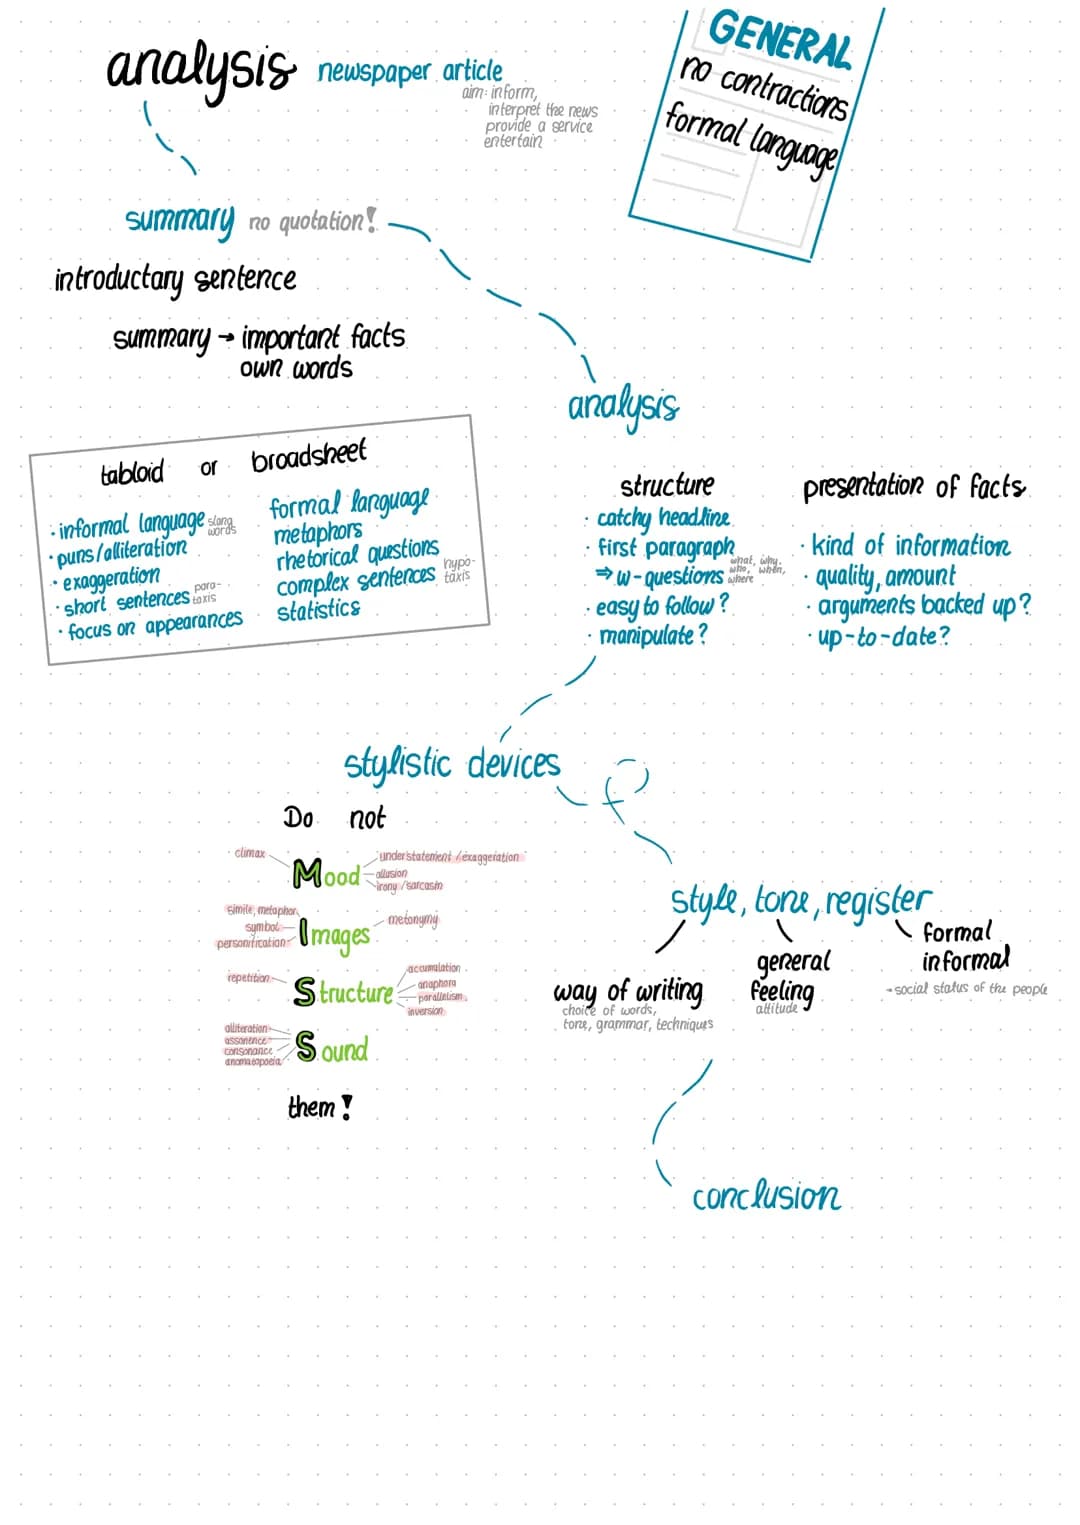 analysis newspaper article
aim: inform,
interpret the news
provide a service
entertain
GENERAL
no contractions
formal language
summary no quotation!
introductary sentence
summary → important facts
own words
analysis
tabloid or broadsheet
· informal language slang words
· puns/alliteration
· exaggeration
· short sentences para-taxis
· focus on appearances
formal language
metaphors
rhetorical questions
complex sentences hypo-taxis
statistics
structure
· catchy headline
· first paragraph
⇒ w-questions what, why, who, when, where
· easy to follow?
· manipulate?
presentation of facts
· kind of information
· quality, amount
· arguments backed up?
· up-to-date?
stylistic devices
Do not
climax
Mood
understatement / exaggeration
allusion
irony / sarcasm
simile, metaphor
symbol
personification
Images
metonymy
repetition
Structure
accumulation
anaphora
parallelism
inversion
alliteration
assonence
consonance
onomatopoeia
Sound
them!
style, tone, register
way of writing
choice of words,
tone, grammar, techniques
general
feeling
attitude
formal
informal
→ social status of the people
conclusion